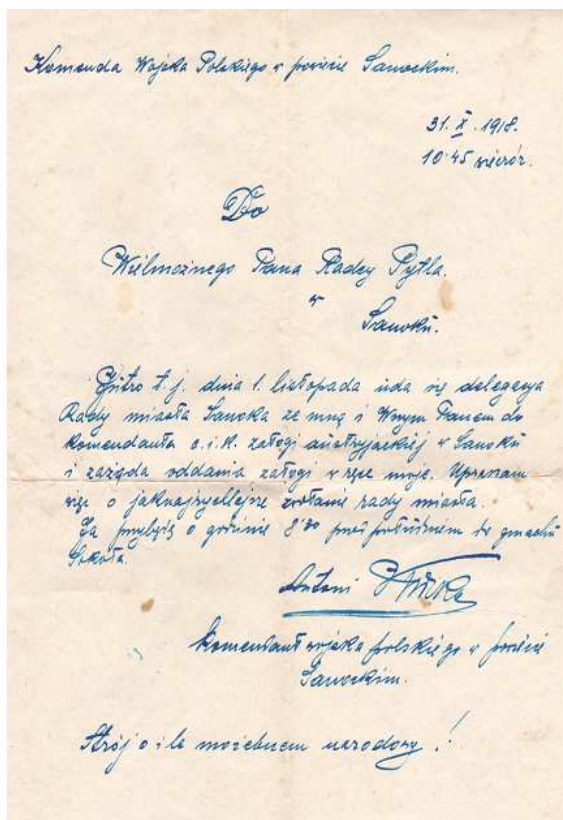 Komenda Wojska Polskiego w powiecie Sanockim.
31. X. 1918.
10.45 wieczór.
Do
Wielmożnego Pana Radcy Pytla.
w
Sanoku.
Jutro t. j. dnia 1. listopada uda się delegacya
Rady miasta Sanoka ze mną i Wnym Panem do
komendanta c. i k. załogi austryjackiej w Sanoku
i zażąda oddania załogi w ręce moje. Upraszam
więc o jaknajrychlejsze zwołanie rady miasta.
Ja przybędę o godzinie 8.30 przed południem do gmachu
Sokoła.
Antoni
Komendant wojska polskiego w powiecie
Sanockim.
Strój o ile możebnem narodowy.!